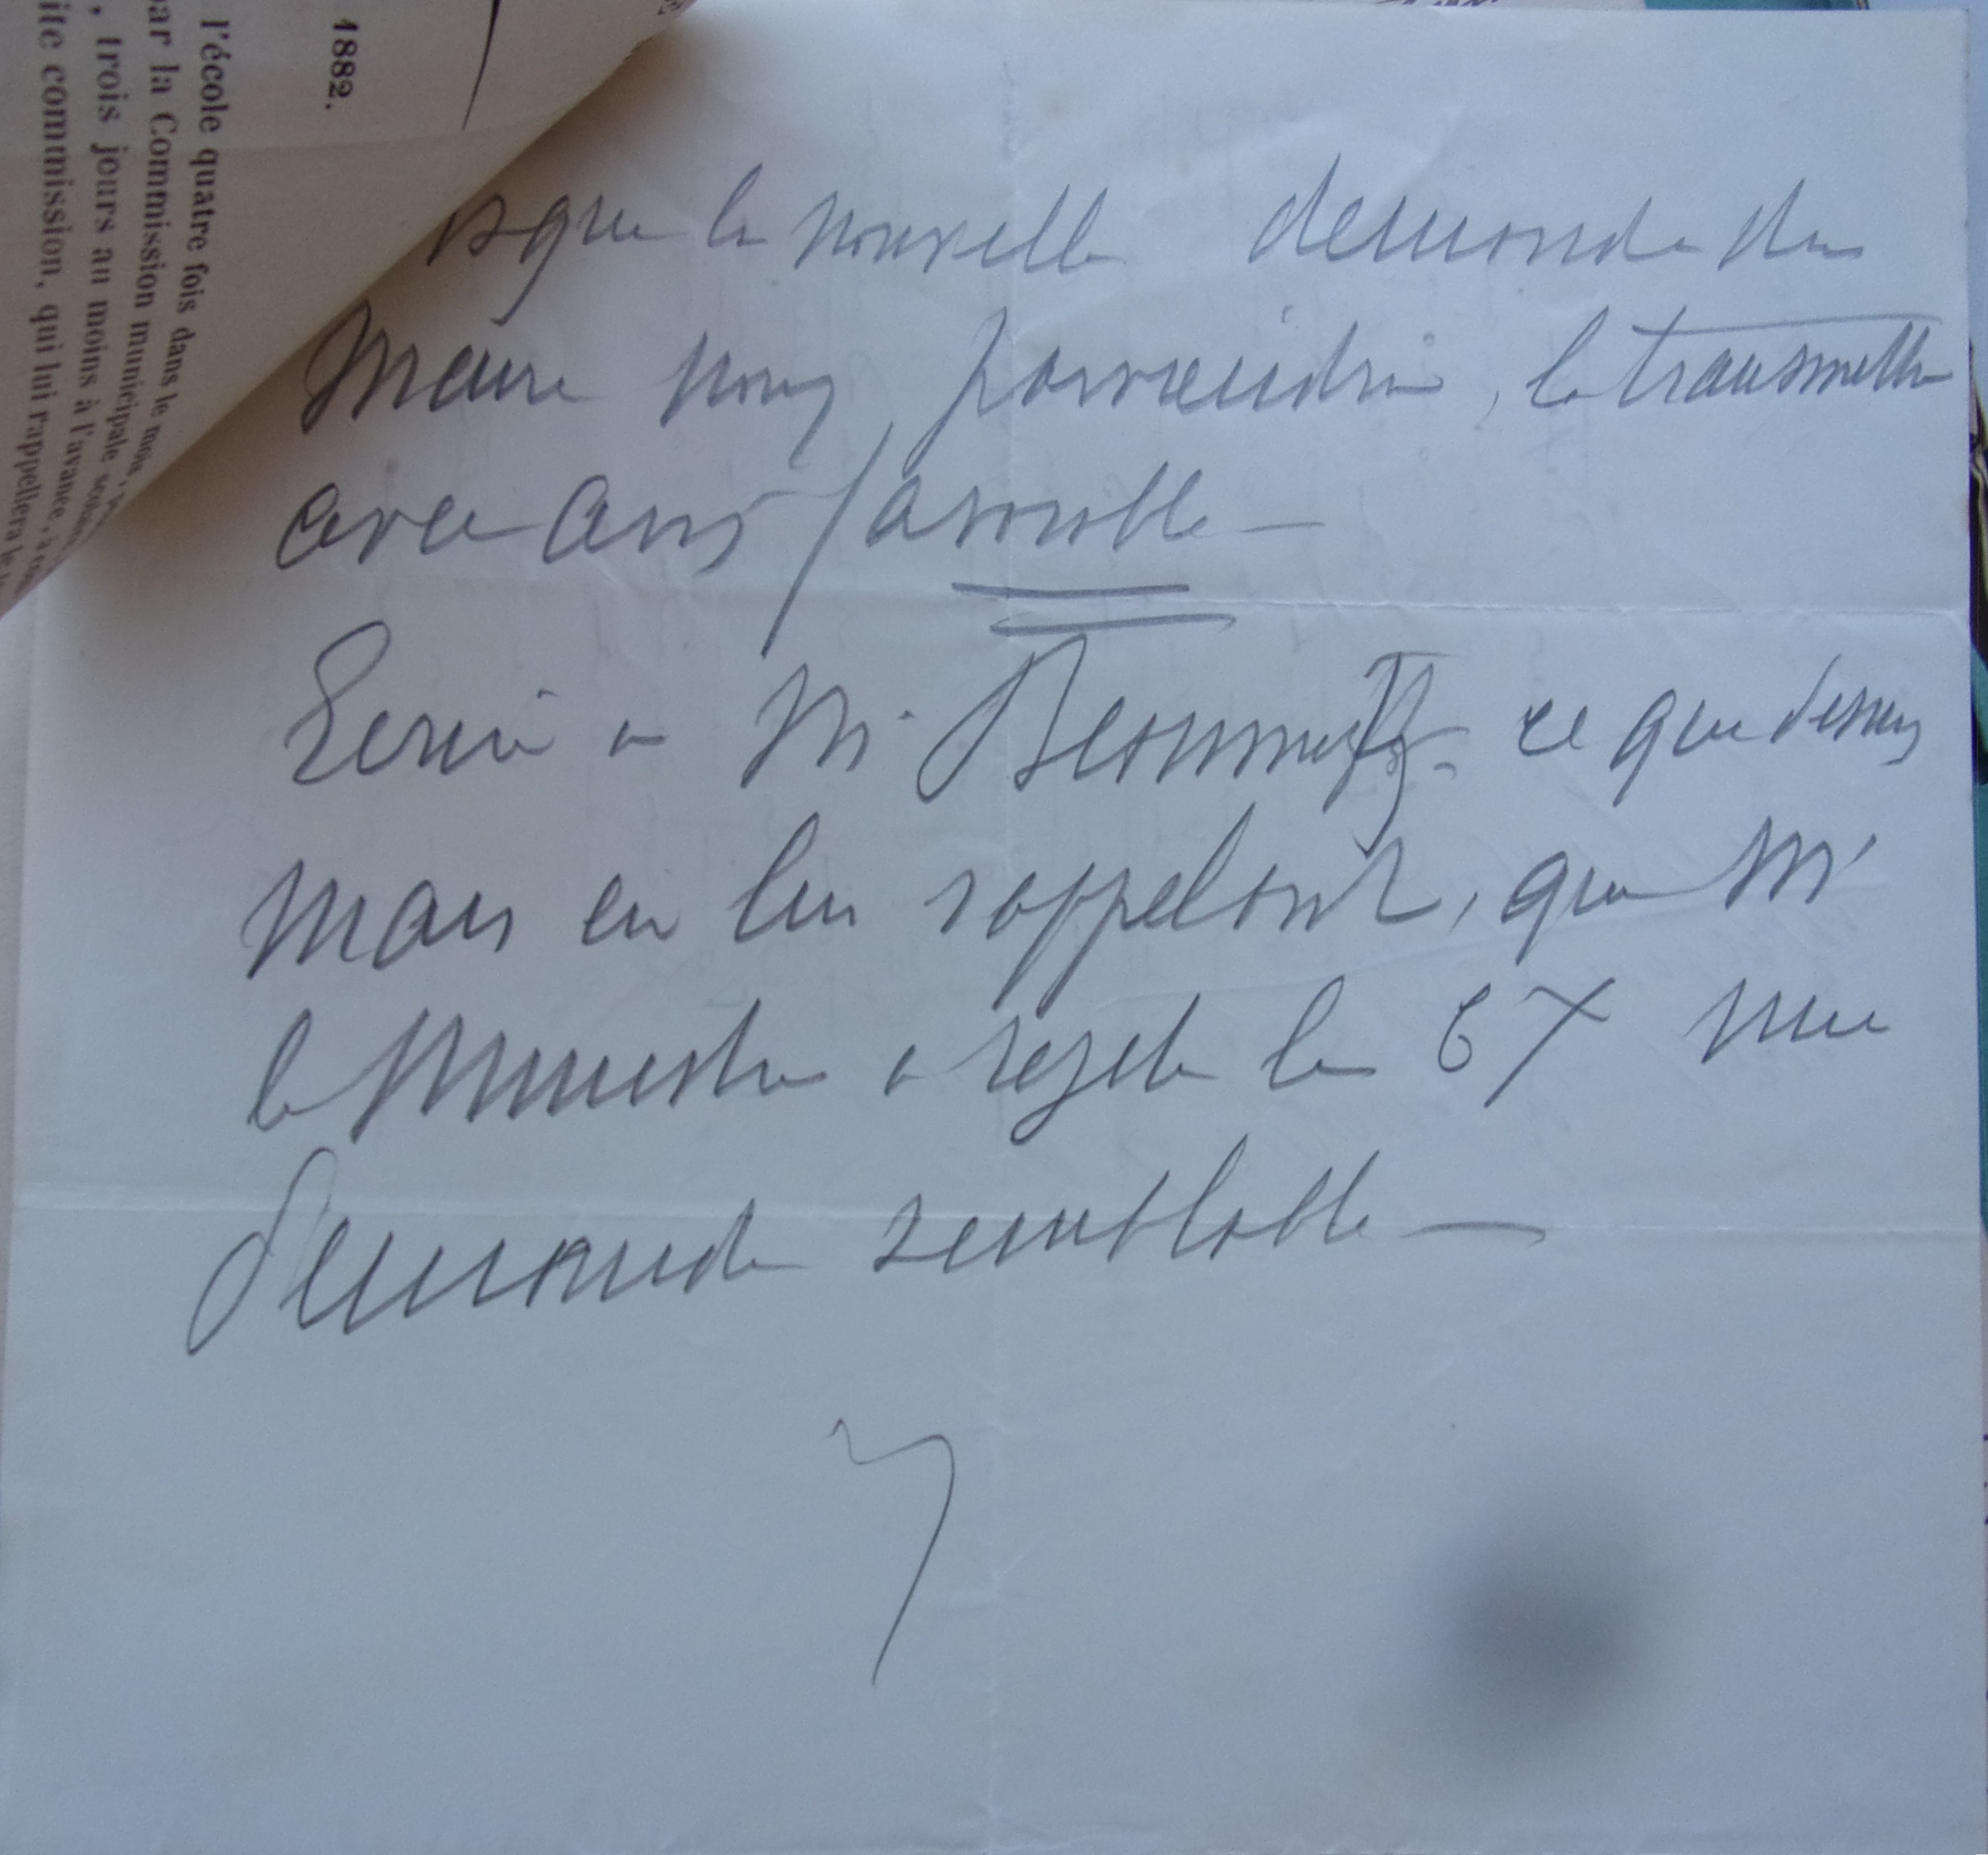 1882.
l'école quatre fois dans le mois,
par la Commission municipale
, trois jours au moins à l'avance,
ite commission, qui lui rappellera
sque la nouvelle demande du
Maire nous parviendra, la transmettre
avec avis favorable —
Ecrire à M. ce que dessus
mais en lui rappelant, que Mr
le Ministre a rejeté le une
demande semblable —